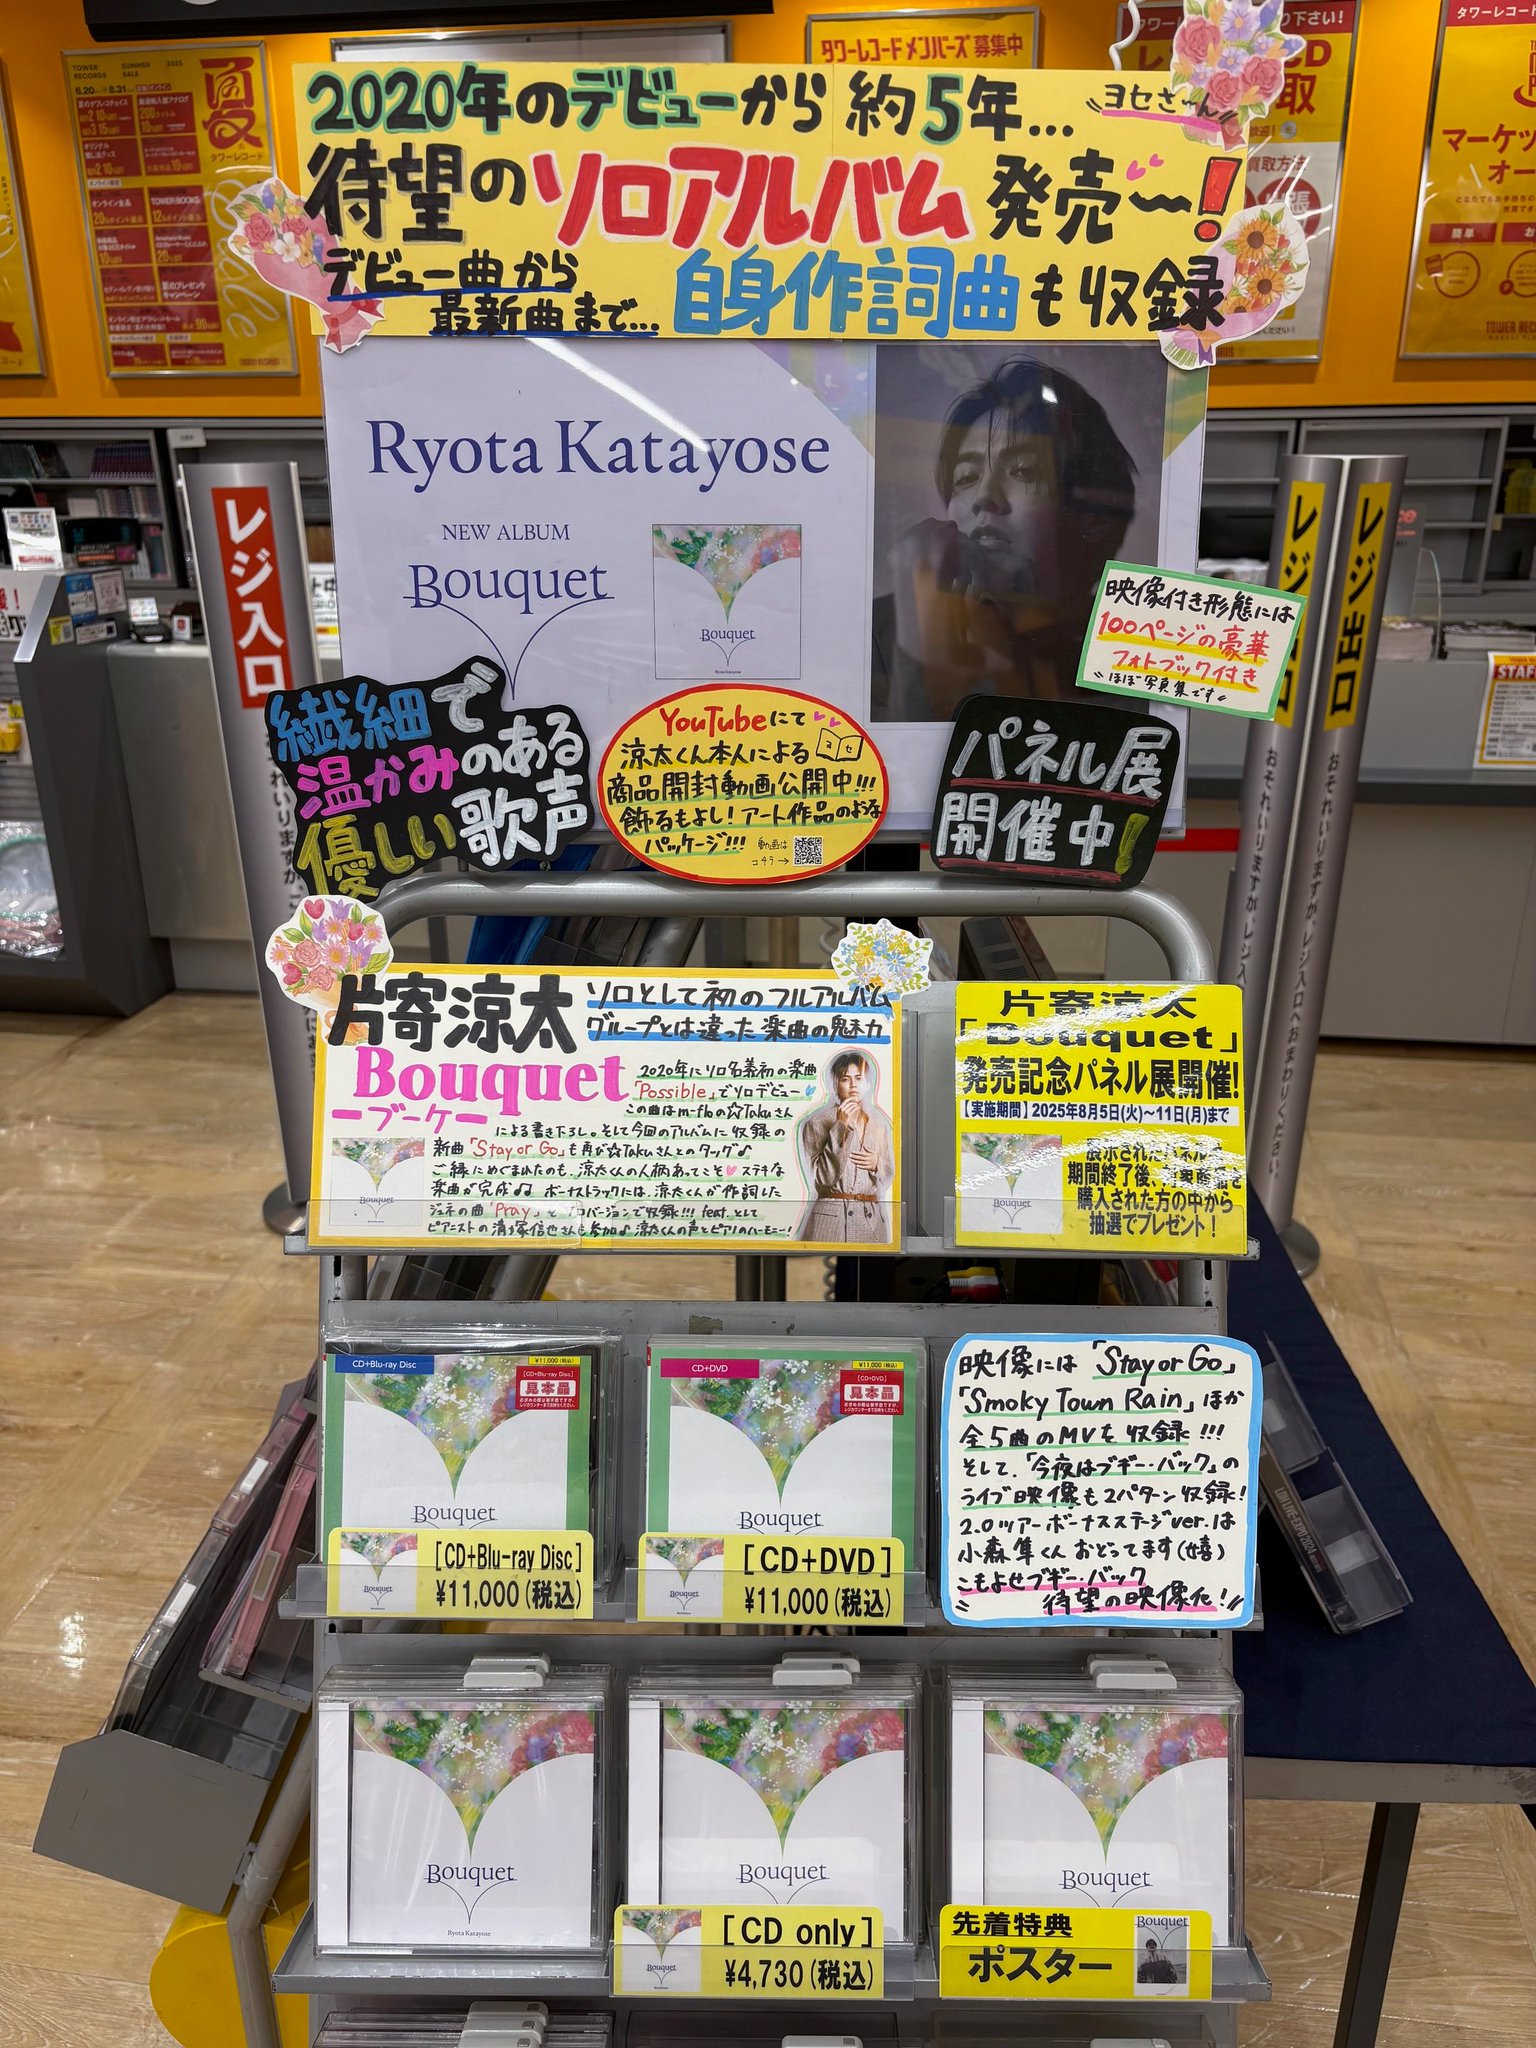 TOWER RECORDS SUMMER SALE 2025
6.20㊎→8.31㊐
夏のタワーレコード
タワーレコードメンバーズ募集中
2020年のデビューから 約5年...
ヨセさ〜ん
待望のソロアルバム 発売〜!
デビュー曲から
最新曲まで...
自身作詞曲も収録
マーケッ
オー
買取方法
Ryota Katayose
NEW ALBUM
Bouquet
Bouquet
Ryota Katayose
レジ入口
レジ出口
映像付き形態には
100ページの豪華
フォトブック付き
ほぼ写真集です
繊細で
温かみのある
優しい歌声
YouTubeにて
涼太くん本人による
商品開封動画公開中!!!
飾るもよし!アート作品のような
パッケージ!!!
動画は
コチラ→
パネル展
開催中!
おそれいりますが、レジ入口へおまわりください。
片寄涼太
ソロとして初のフルアルバム
グループとは違った楽曲の魅力
Bouquet
ーブーケー
2020年にソロ名義初の楽曲
「Possible」でソロデビュー
この曲はm-floの☆Takuさん
による書き下ろし。そして今回のアルバムに収録の
新曲「Stay or Go」も再び☆Takuさんとのタッグ♪
ご縁にめぐまれたのも、涼太くんの人柄あってこそ♥ステキな
楽曲が完成♪♪ ボーナストラックには、涼太くんが作詞した
ジェネの曲「Pray」をソロバージョンで収録!!! feat.として
ピアニストの清塚信也さんも参加♪涼太くんの声とピアノのハーモニー!
片寄涼太
「Bouquet」
発売記念パネル展開催!
【実施期間】2025年8月5日(火)〜11日(月)まで
展示されたパネルを
期間終了後、対象商品を
購入された方の中から
抽選でプレゼント!
CD+Blu-ray Disc
¥11,000(税込)
[CD+Blu-ray Disc]
見本品
Bouquet
CD+DVD
¥11,000(税込)
[CD+DVD]
見本品
Bouquet
[CD+Blu-ray Disc]
¥11,000(税込)
[CD+DVD]
¥11,000(税込)
映像には「Stay or Go」
「Smoky Town Rain」ほか
全5曲のMVを収録!!!
そして、「今夜はブギー・バック」の
ライブ映像も2パターン収録!
2.0ツアーボーナスステージver.は
小森隼くんおどってます(嬉)
こもよせブギー・バック
待望の映像化!
Bouquet
Ryota Katayose
Bouquet
Bouquet
[CD only]
¥4,730(税込)
先着特典
ポスター
Bouquet